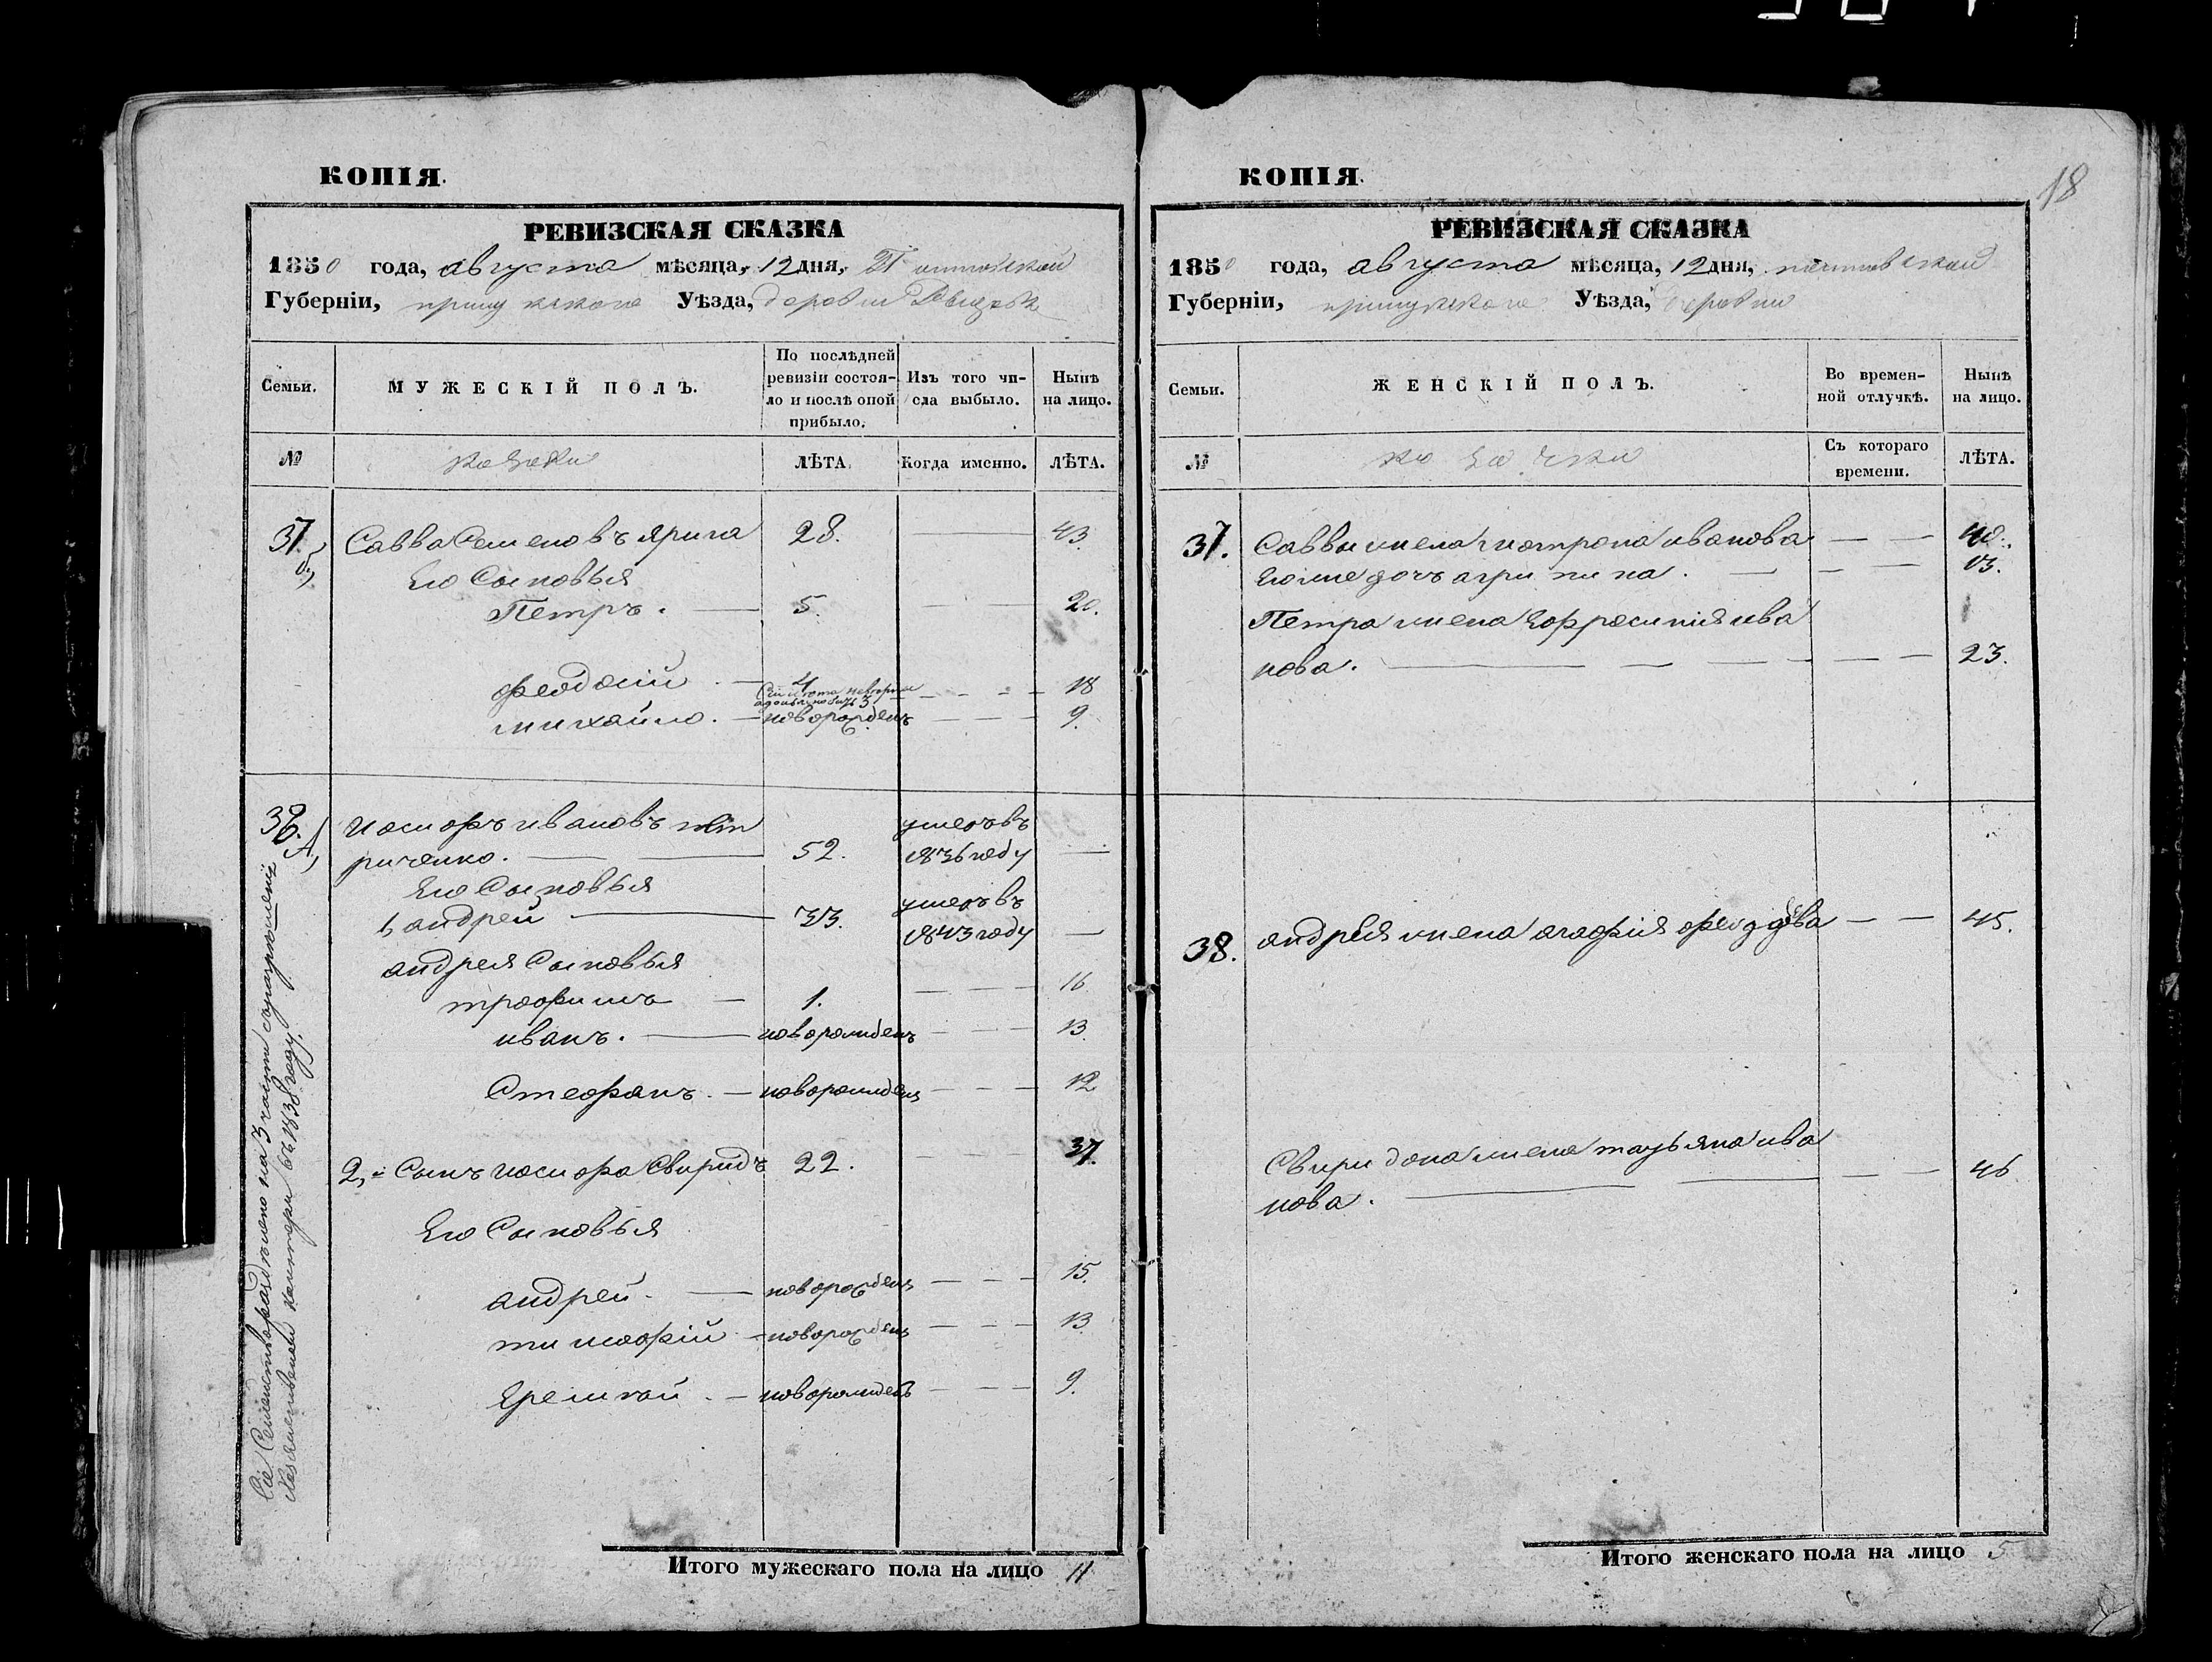 КОПІЯ.
РЕВИЗСКАЯ СКАЗКА
1850 года, августа мѣсяца, 12 дня, Полтавской
Губерніи, прилуцкаго Уѣзда, деревни
Семьи.
МУЖЕСКІЙ ПОЛЪ.
По послѣдней ревизіи состояло и послѣ оной прибыло.
Изъ того числа выбыло.
Нынѣ на лицо.
№
козаки
ЛѢТА.
Когда именно.
ЛѢТА.
37. Савва Семеновъ Ярига 28. 43.
Его Сыновья
Петръ. 5. 20.
феодосій. 4 18
михайло. новорожденъ 9.
38. иосифъ ивановъ
риченко. 52. умеръ въ 1836 году
Его Сыновья
1, андрей 33. умеръ въ 1843 году
андрея Сыновья
трофимъ 1. 16
иванъ. новорожденъ 13.
Стефанъ. новорожденъ 12
2, Сынъ иосифа Свиридъ 22. 37.
Его Сыновья
андрей. новорожденъ 15.
тимофій новорожденъ 13.
Еремѣй. новорожденъ 9.
Сіе Семейство раздѣлено на 3 части
въ 1838 году.
Итого мужескаго пола на лицо 11
18
КОПІЯ.
РЕВИЗСКАЯ СКАЗКА
1850 года, августа мѣсяца, 12 дня, полтавской
Губерніи, прилуцкаго Уѣзда, деревни
Семьи.
ЖЕНСКІЙ ПОЛЪ.
Во временной отлучкѣ.
Нынѣ на лицо.
№
козачки
Съ котораго времени.
ЛѢТА.
37. Саввы жена мотрона иванова 40.
Его же дочъ агрипина. 13.
Петра жена Ефросинія ива
нова. 23.
38. андрея жена агафія 45.
Свиридона жена татьяна ива
нова. 46
Итого женскаго пола на лицо 5